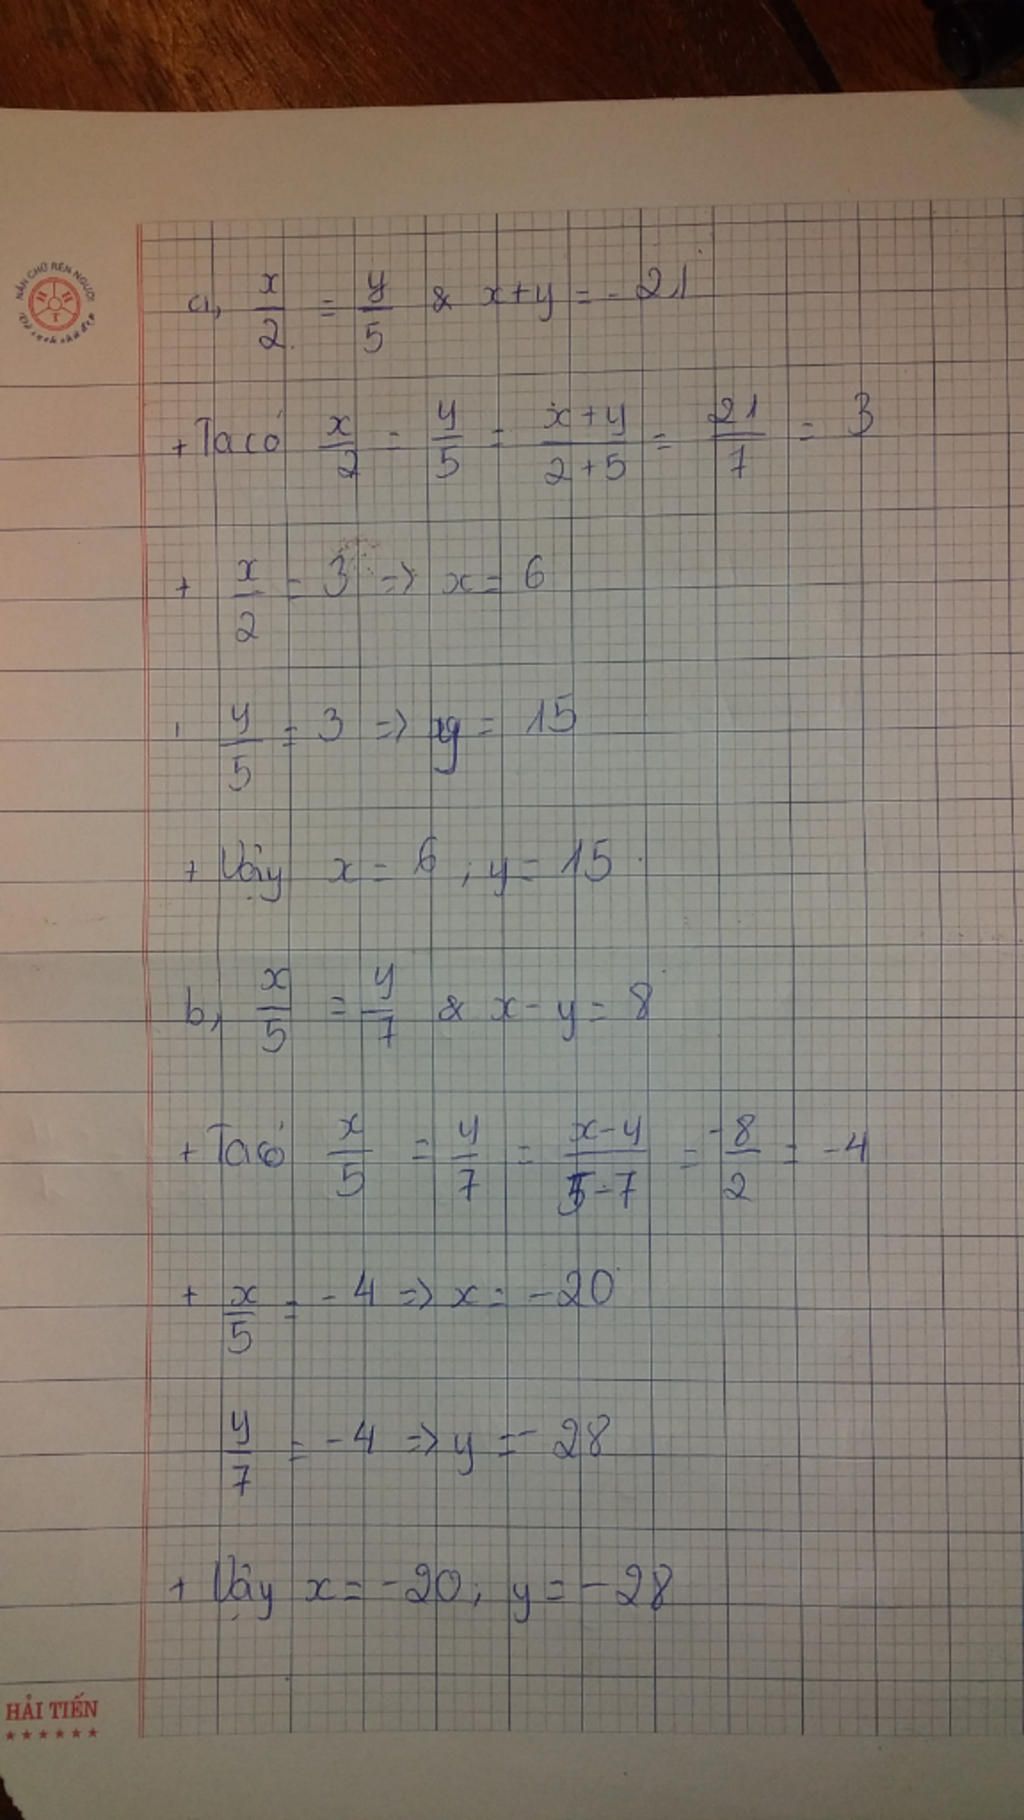 NẮN CHỮ RÈN NGƯỜI
H H T
a, x/2 = y/5 & x+y = - 21
+ Ta có x/2 = y/5 = x+y/2+5 = 21/7 = 3
+ x/2 = 3 => x = 6
+ y/5 = 3 => y = 15
+ Vậy x = 6 ; y = 15.
b, x/5 = y/7 & x - y = 8
+ Ta có x/5 = y/7 = x-y/5-7 = -8/2 = -4
+ x/5 = -4 => x = -20
y/7 = -4 => y = -28
+ Vậy x = -20 ; y = -28
HẢI TIẾN